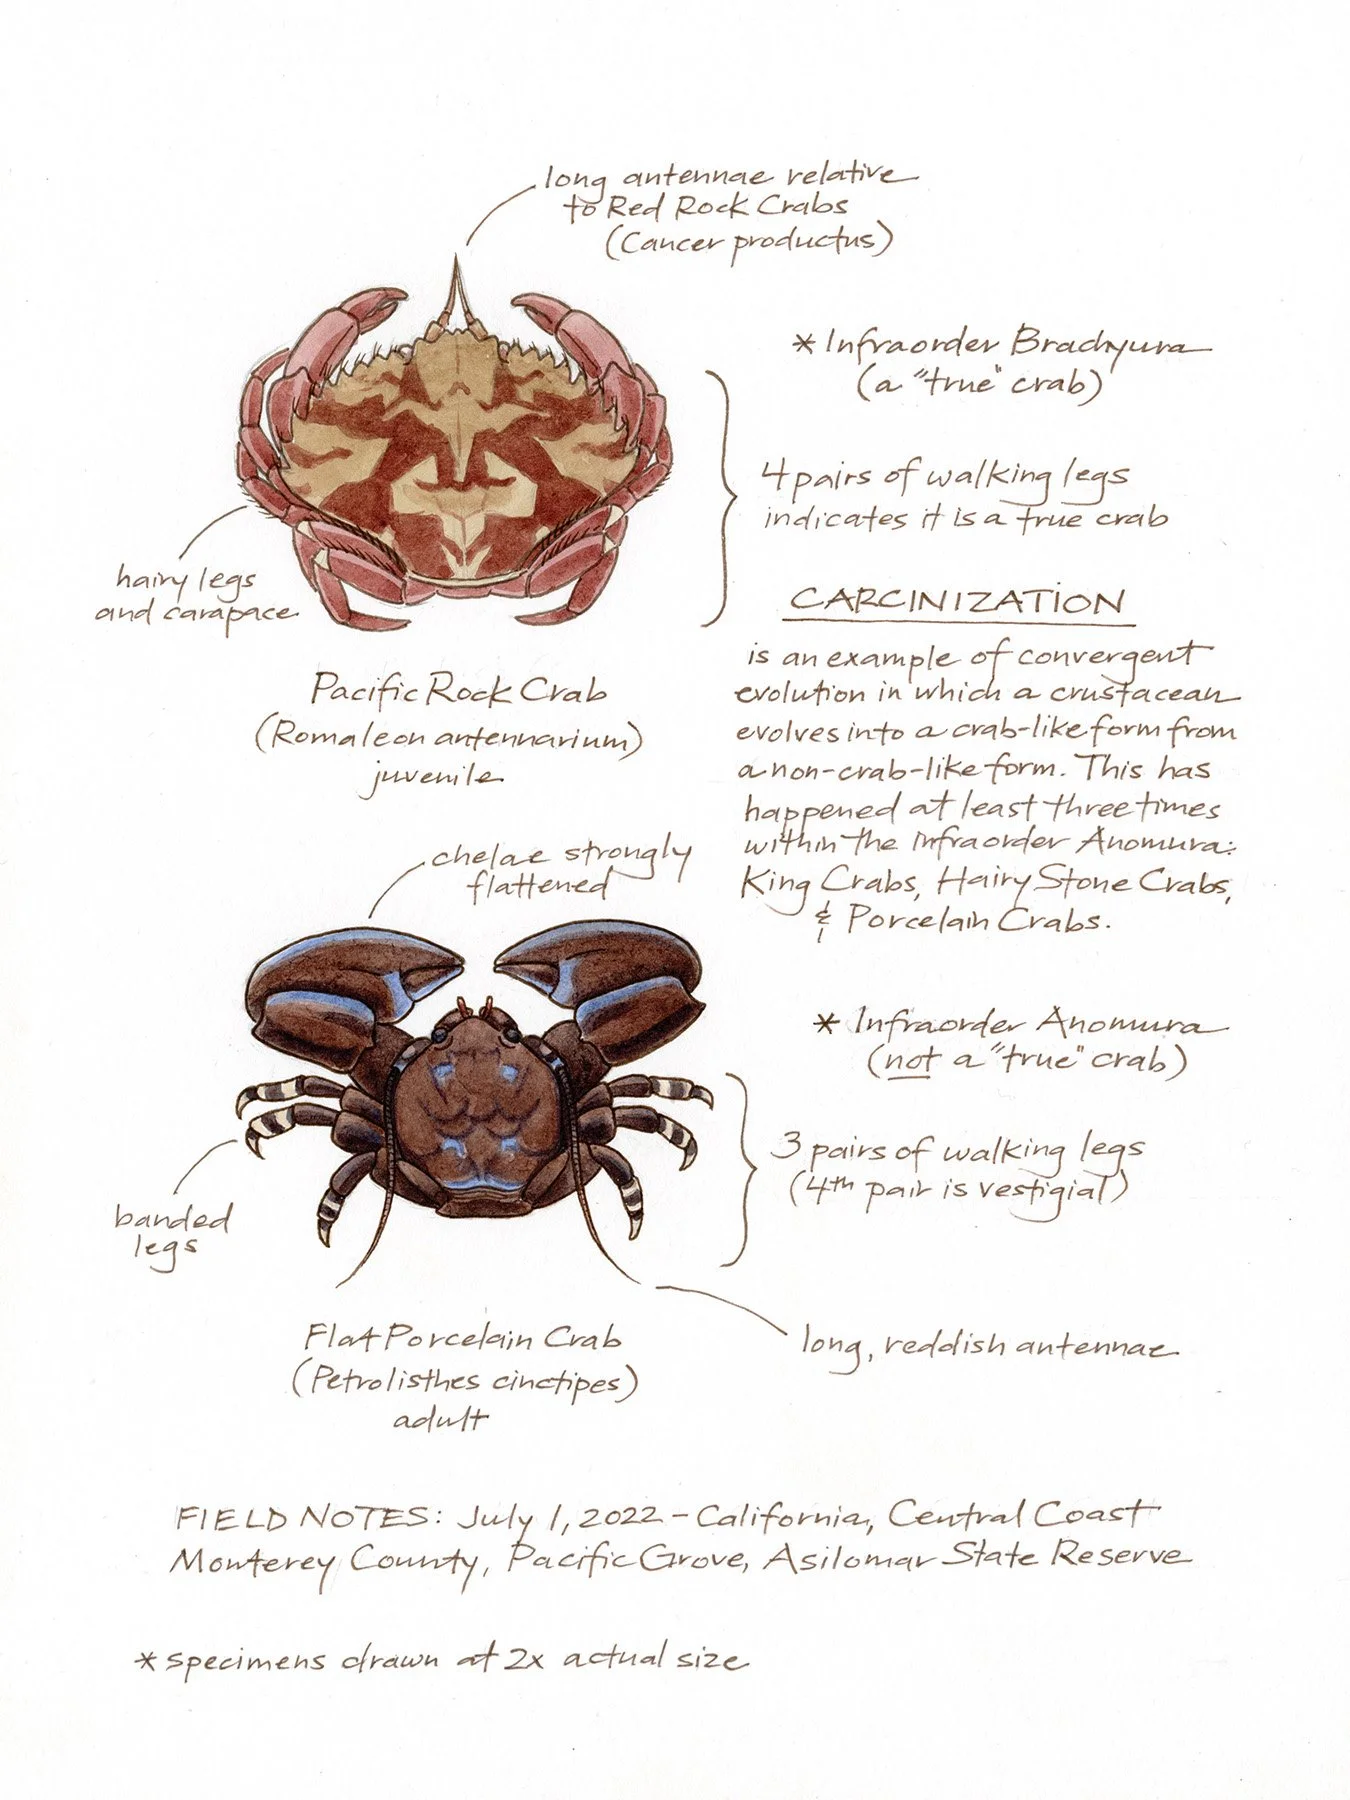 long antennae relative
to Red Rock Crabs
(Cancer productus)
* Infraorder Brachyura
(a "true" crab)
4 pairs of walking legs
indicates it is a true crab
hairy legs
and carapace
Pacific Rock Crab
(Romaleon antennarium)
juvenile
CARCINIZATION
is an example of convergent
evolution in which a crustacean
evolves into a crab-like form from
a non-crab-like form. This has
happened at least three times
within the Infraorder Anomura:
King Crabs, Hairy Stone Crabs,
& Porcelain Crabs.
chelae strongly
flattened
* Infraorder Anomura
(not a "true" crab)
3 pairs of walking legs
(4th pair is vestigial)
banded
legs
long, reddish antennae
Flat Porcelain Crab
(Petrolisthes cinctipes)
adult
FIELD NOTES: July 1, 2022 - California, Central Coast
Monterey County, Pacific Grove, Asilomar State Reserve
* specimens drawn at 2x actual size